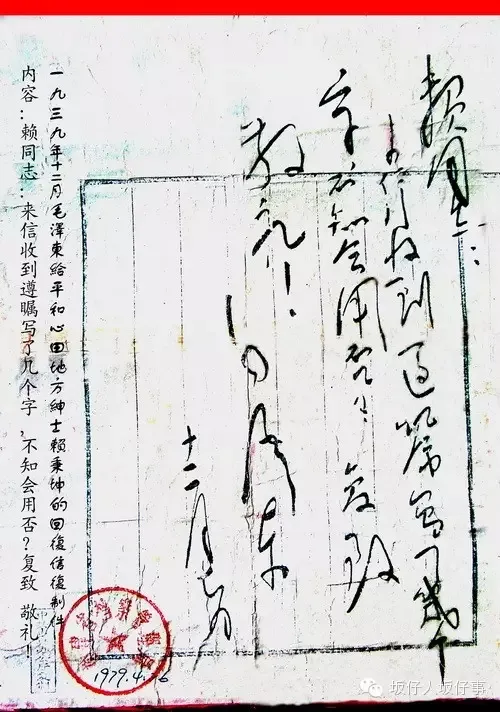 賴同志：
来信收到遵嘱写了幾个
字不知会用否？复致
敬礼！
毛泽东
十二月
一九三九年十二月毛澤東給平和心田地方紳士賴秉坤的回復信復制件
内容：赖同志：来信收到遵瞩写了几个字，不知会用否？复致 敬礼！
坂仔人坂仔事